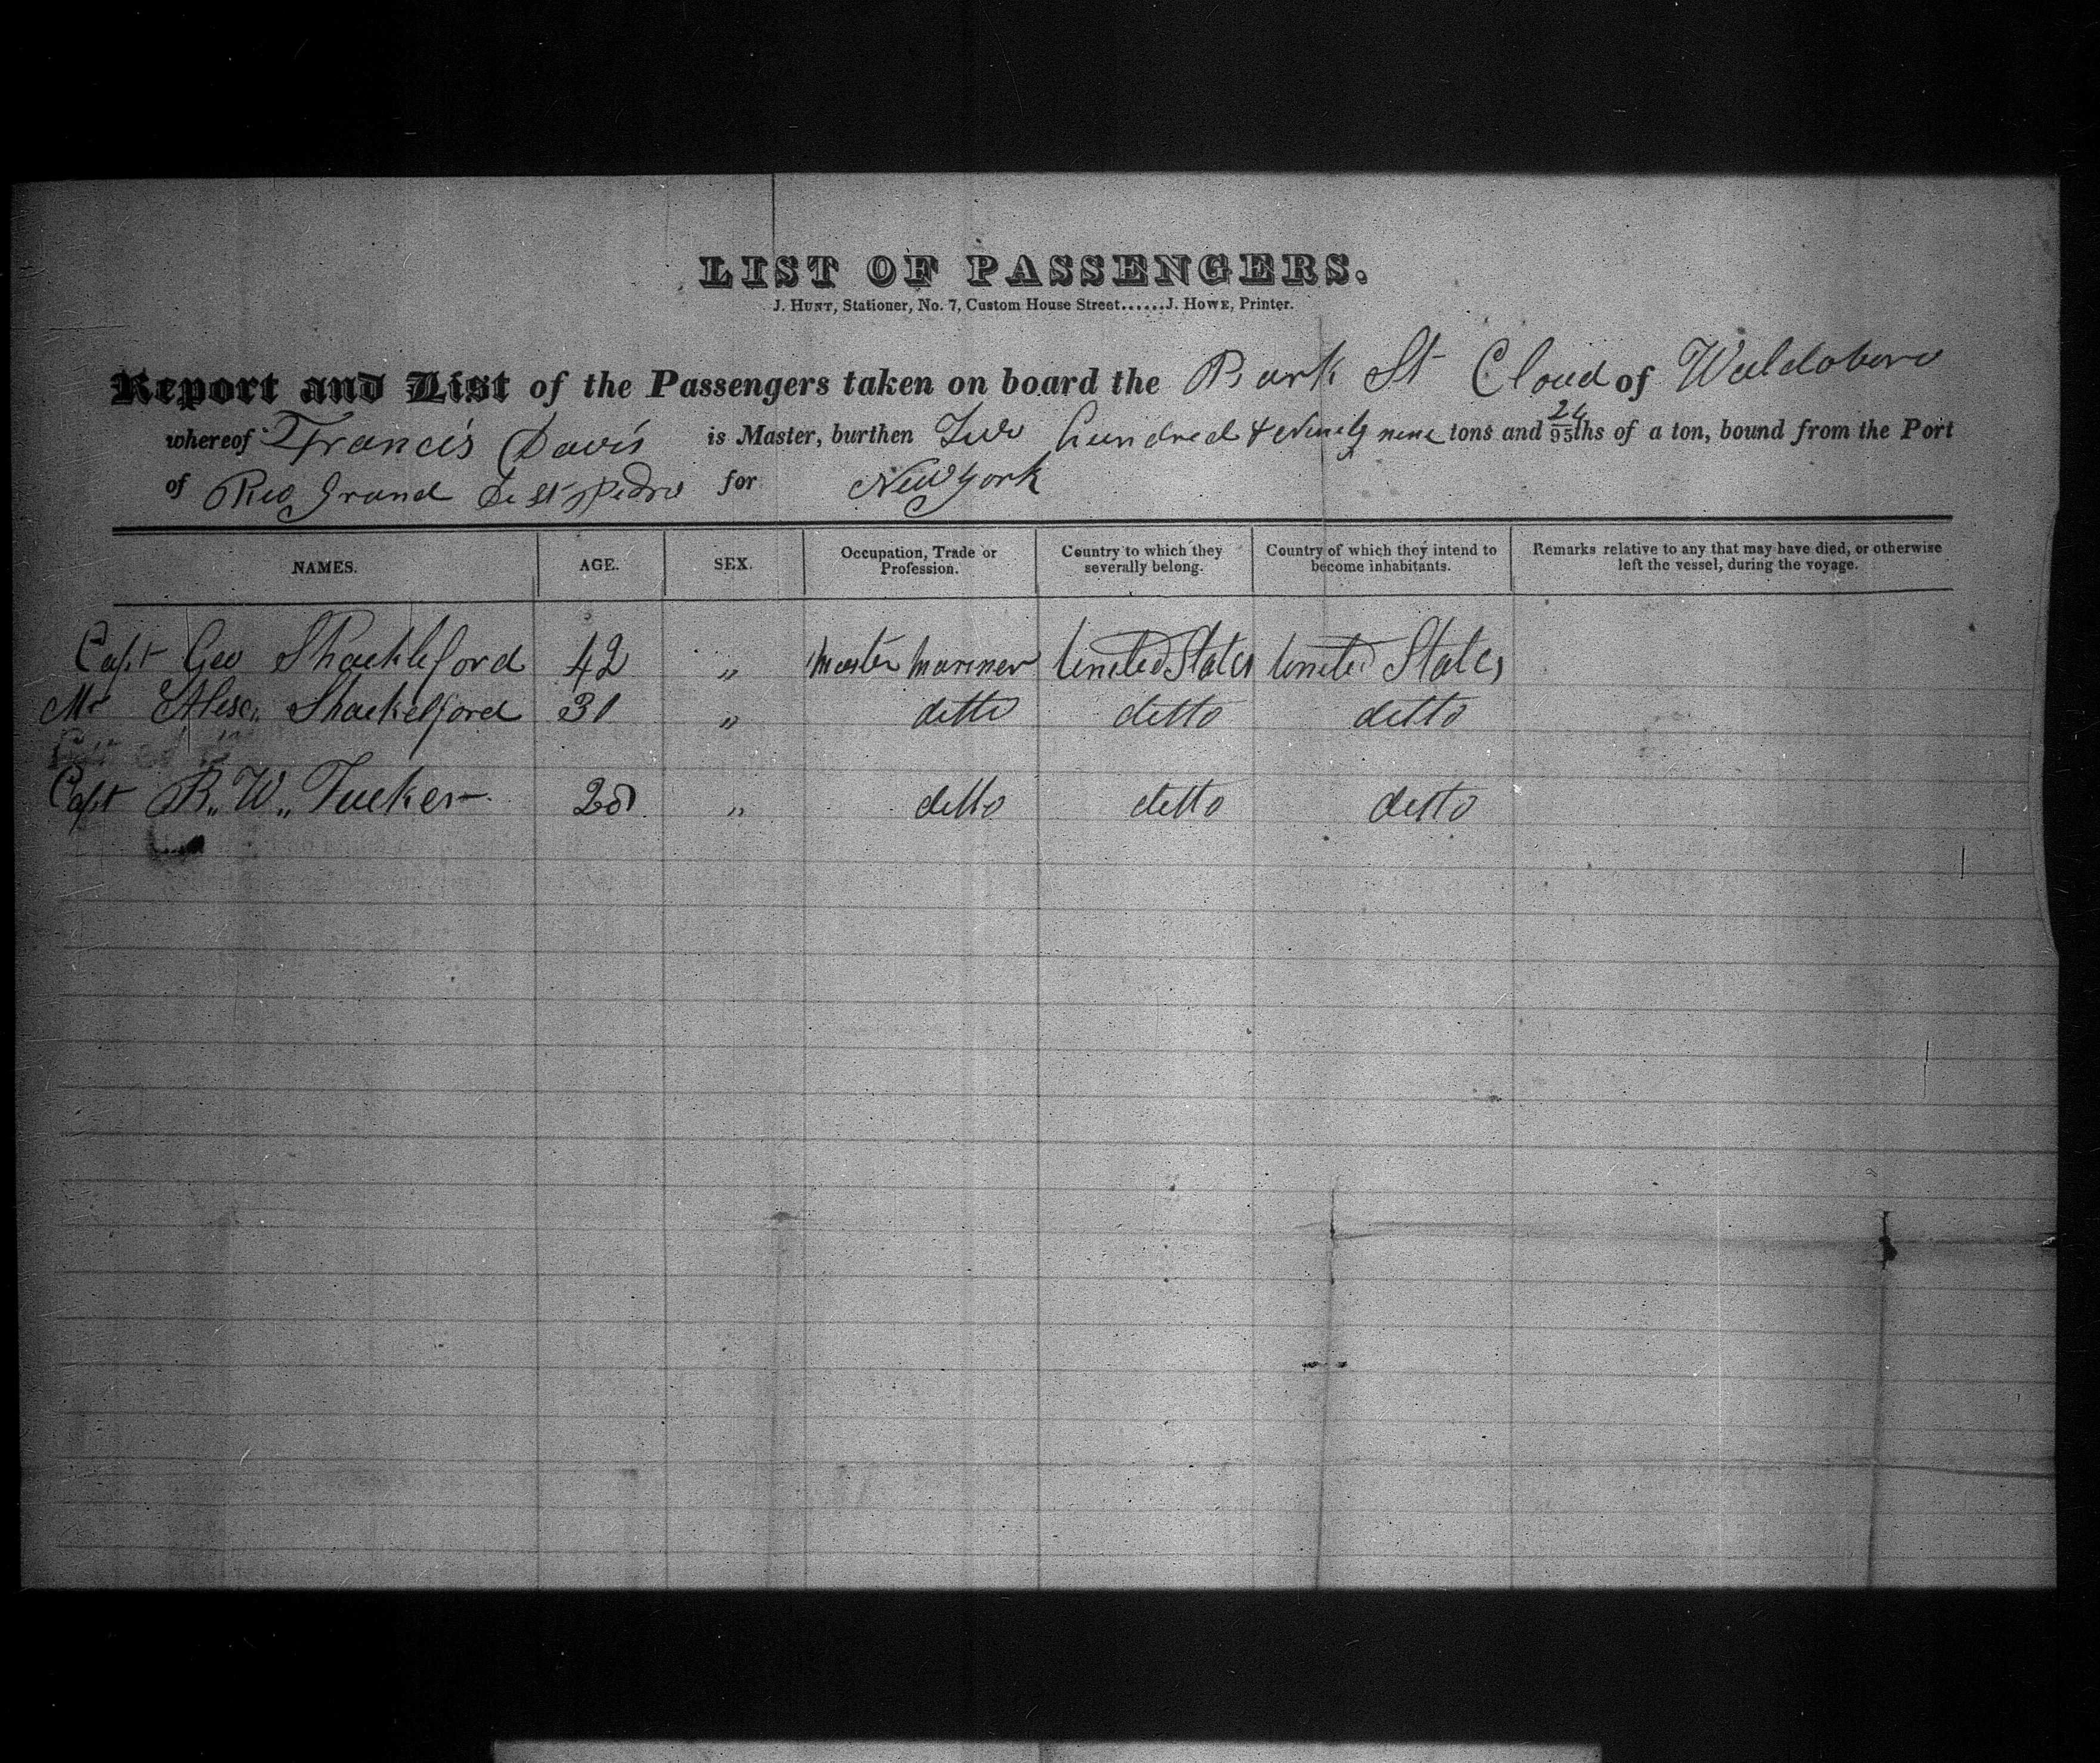 LIST OF PASSENGERS.
J. HUNT, Stationer, No. 7, Custom House Street......J. HOWE, Printer.
Report and List of the Passengers taken on board the Bark St Cloud of Waldoboro
whereof Francis Davis is Master, burthen Two hundred & Ninety nine tons and 24/95ths of a ton, bound from the Port
of Rio Grand de St Pedro for New York
NAMES. AGE. SEX. Occupation, Trade or Profession. Country to which they severally belong. Country of which they intend to become inhabitants. Remarks relative to any that may have died, or otherwise left the vessel, during the voyage.
Capt Geo Shackleford 42 " Master Mariner United States United States
Mr Alex Shackelford 31 " ditto ditto ditto
Capt B,, W,, Tucker 28 " ditto ditto ditto